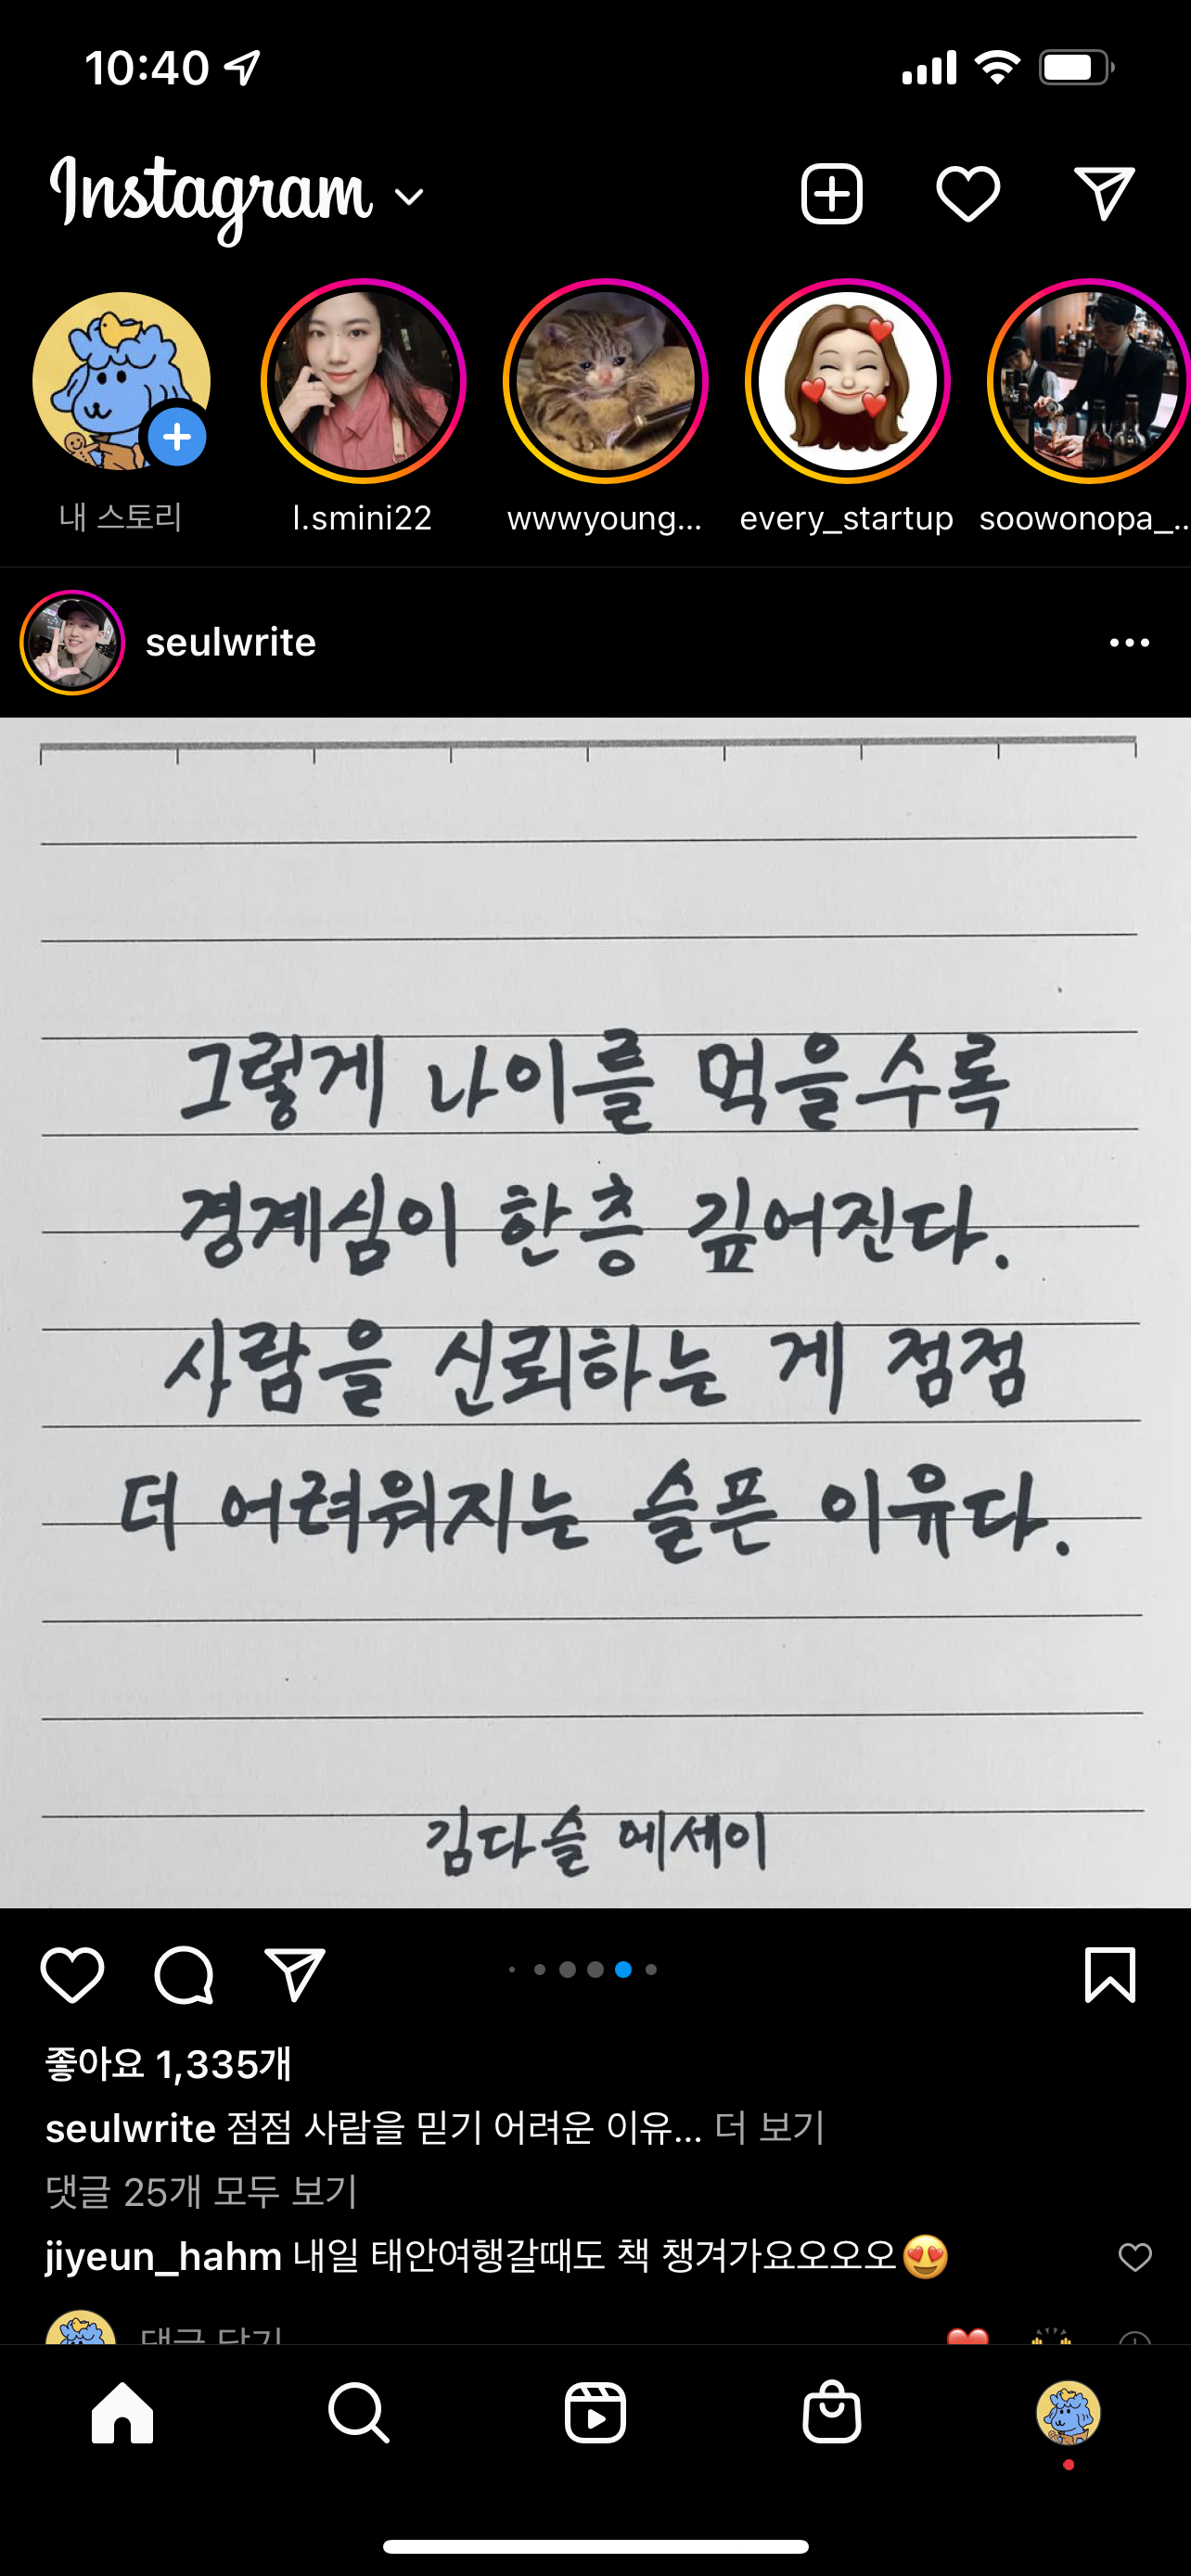 10:40
Instagram
내 스토리
l.smini22
wwwyoung...
every_startup
soowonopa_...
seulwrite
그렇게 나이를 먹을수록
경계심이 한층 깊어진다.
사람을 신뢰하는 게 점점
더 어려워지는 슬픈 이유다.
김다슬 에세이
좋아요 1,335개
seulwrite 점점 사람을 믿기 어려운 이유... 더 보기
댓글 25개 모두 보기
jiyeun_hahm 내일 태안여행갈때도 책 챙겨가요오오오😍
댓글 달기